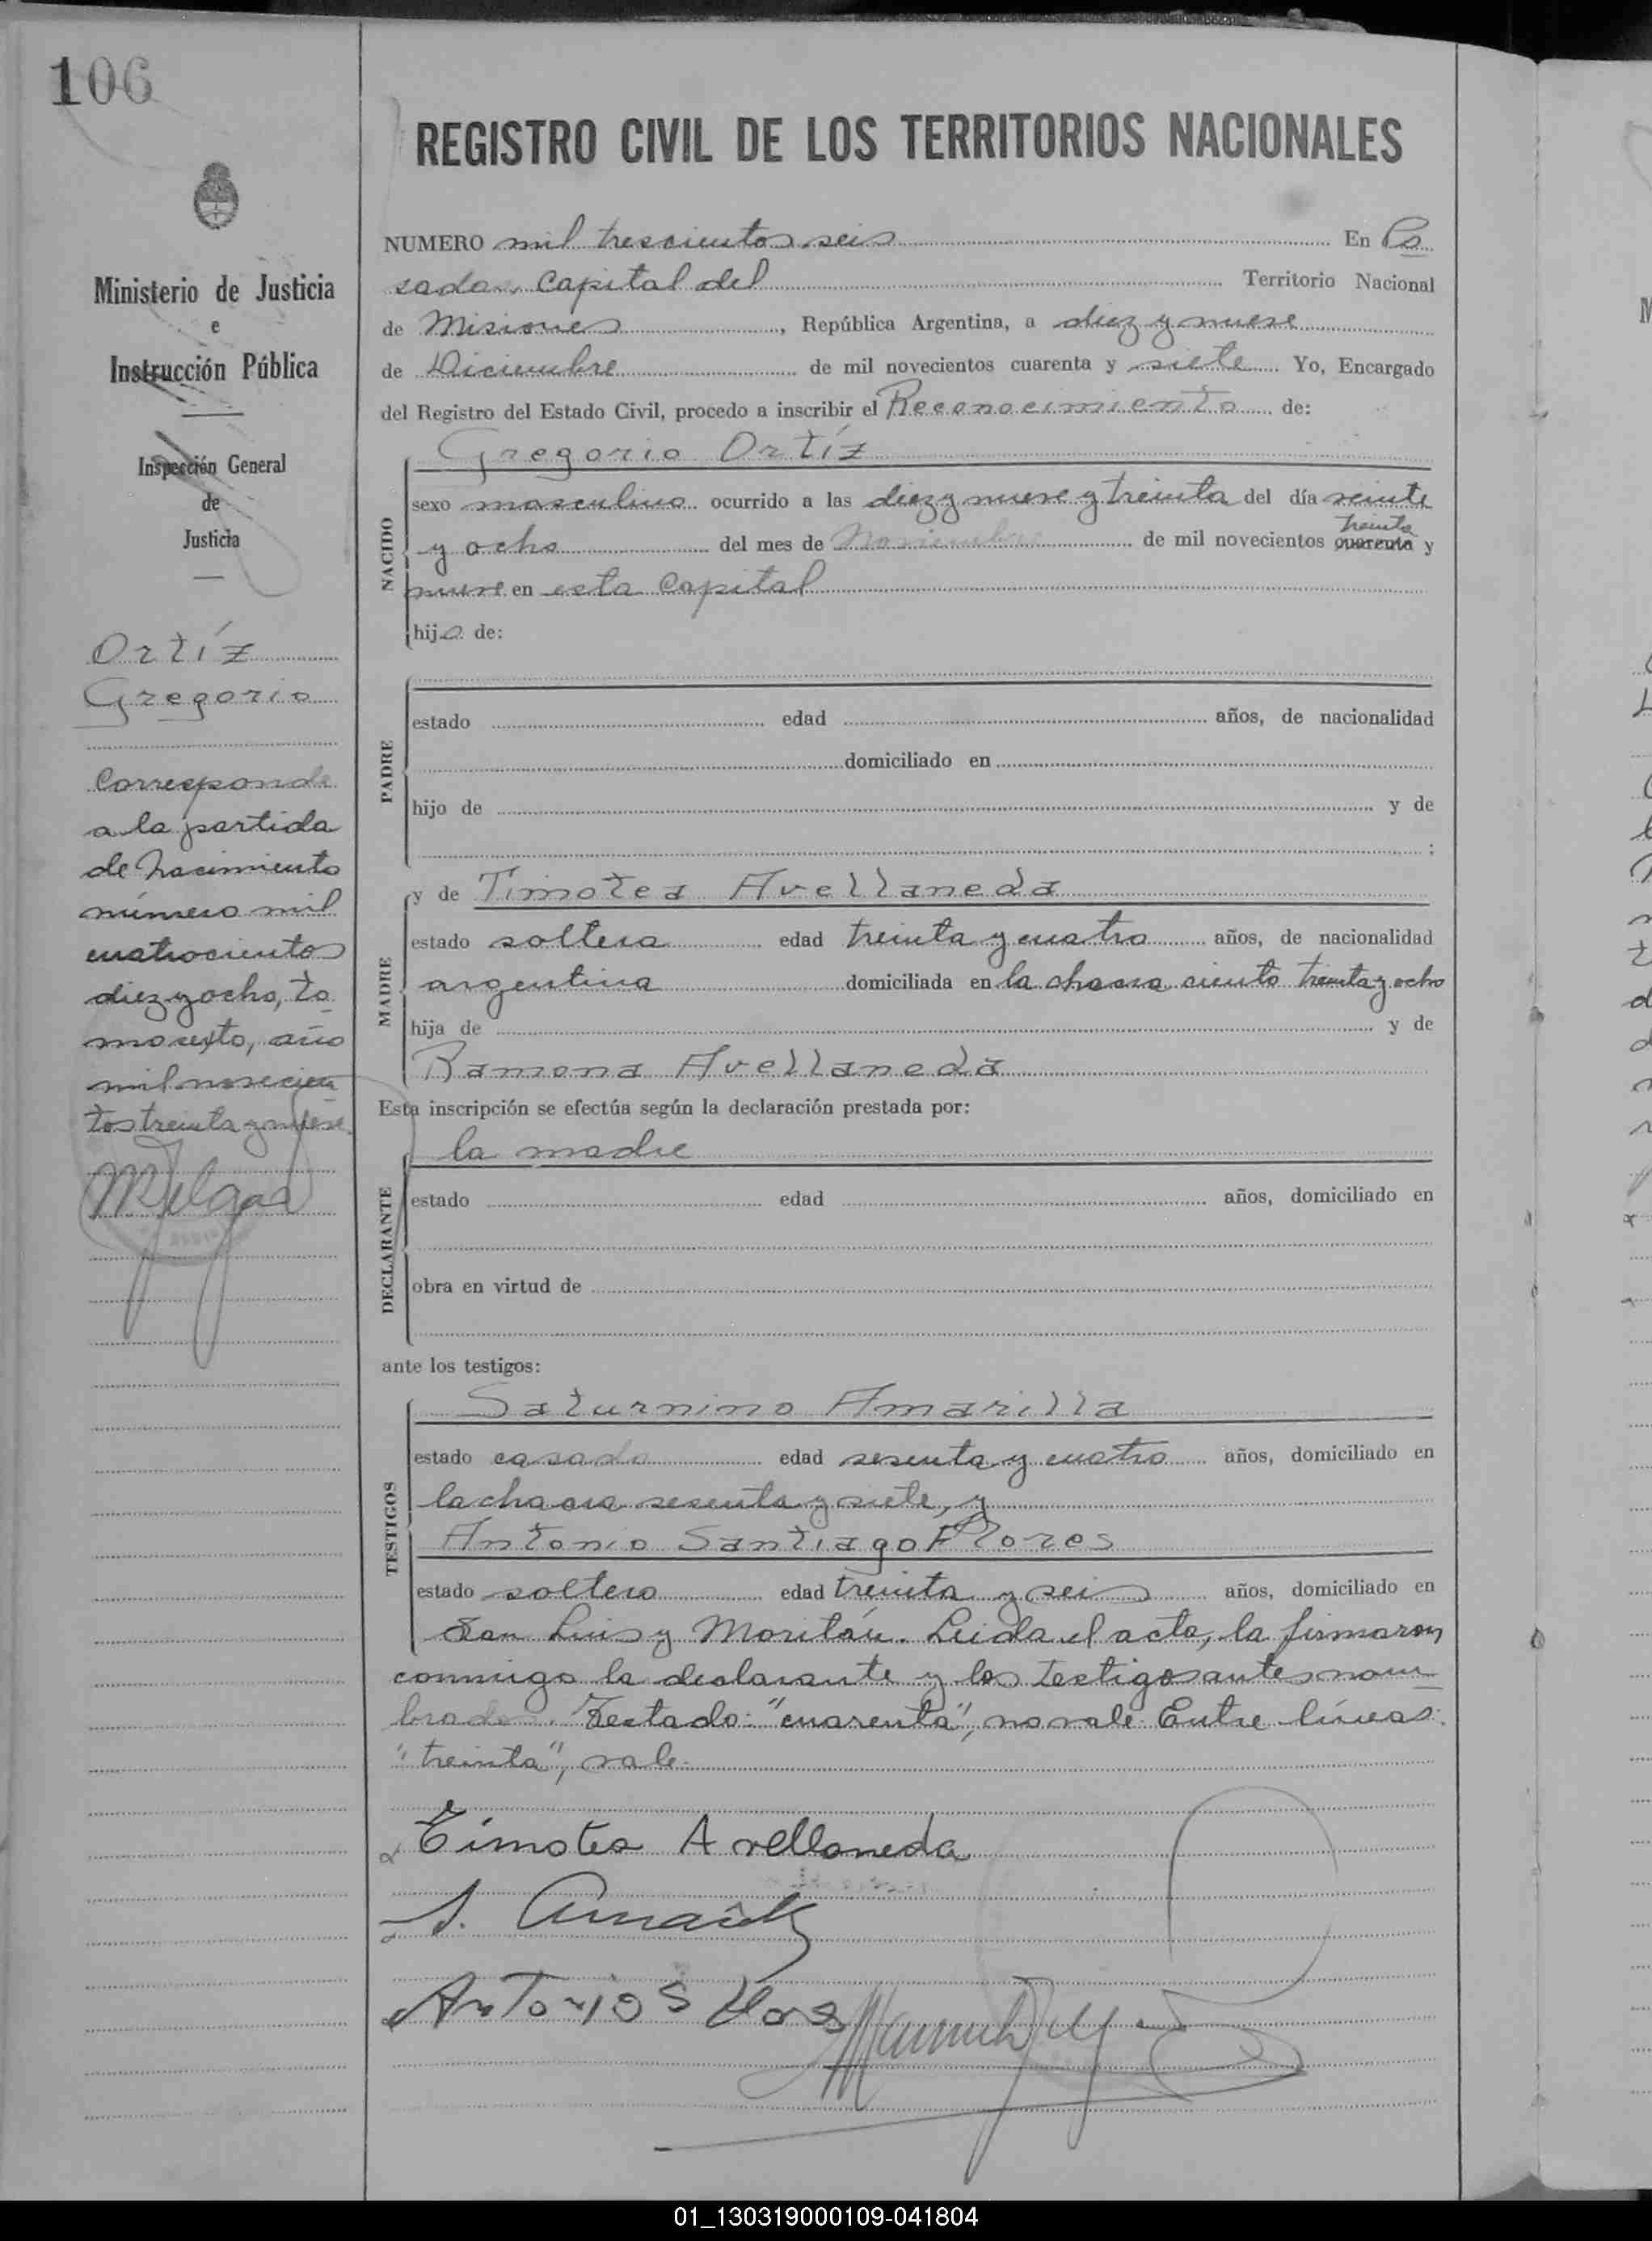 106
REGISTRO CIVIL DE LOS TERRITORIOS NACIONALES
Ministerio de Justicia
e
Instrucción Pública
Inspección General
de
Justicia
Ortíz
Gregorio
Corresponde
a la partida
de nacimiento
número mil
cuatrocientos
diez y ocho, to
mo sexto, año
mil novecien
tos treinta y nueve.
NUMERO mil trescientos seis En Po
sadas, Capital del Territorio Nacional
de Misiones, República Argentina, a diez y nueve
de Diciembre de mil novecientos cuarenta y siete. Yo, Encargado
del Registro del Estado Civil, procedo a inscribir el Reconocimiento de:
NACIDO
Gregorio Ortíz
sexo masculino ocurrido a las diez y nueve y treinta del día veinte
treinta
y ocho del mes de Noviembre de mil novecientos cuarenta y
nueve en esta Capital
hijo de:
PADRE
estado edad años, de nacionalidad
domiciliado en
hijo de y de
;
MADRE
y de Timotea Avellaneda
estado soltera edad treinta y cuatro años, de nacionalidad
argentina domiciliada en la chacra ciento treinta y ocho
hija de y de
Ramona Avellaneda
Esta inscripción se efectúa según la declaración prestada por:
DECLARANTE
la madre
estado edad años, domiciliado en
obra en virtud de
ante los testigos:
TESTIGOS
Saturnino Amarilla
estado casado edad sesenta y cuatro años, domiciliado en
la chacra sesenta y siete, y
Antonio Santiago Flores
estado soltero edad treinta y seis años, domiciliado en
San Luis y Moritán. Leida el acta, la firmaron
conmigo la declarante y los testigos antes nom
brados. Testado: "cuarenta", no vale. Entre líneas:
"treinta", vale.
Timotea Avellaneda
S. Amarilla
Antonio S
01_130319000109-041804